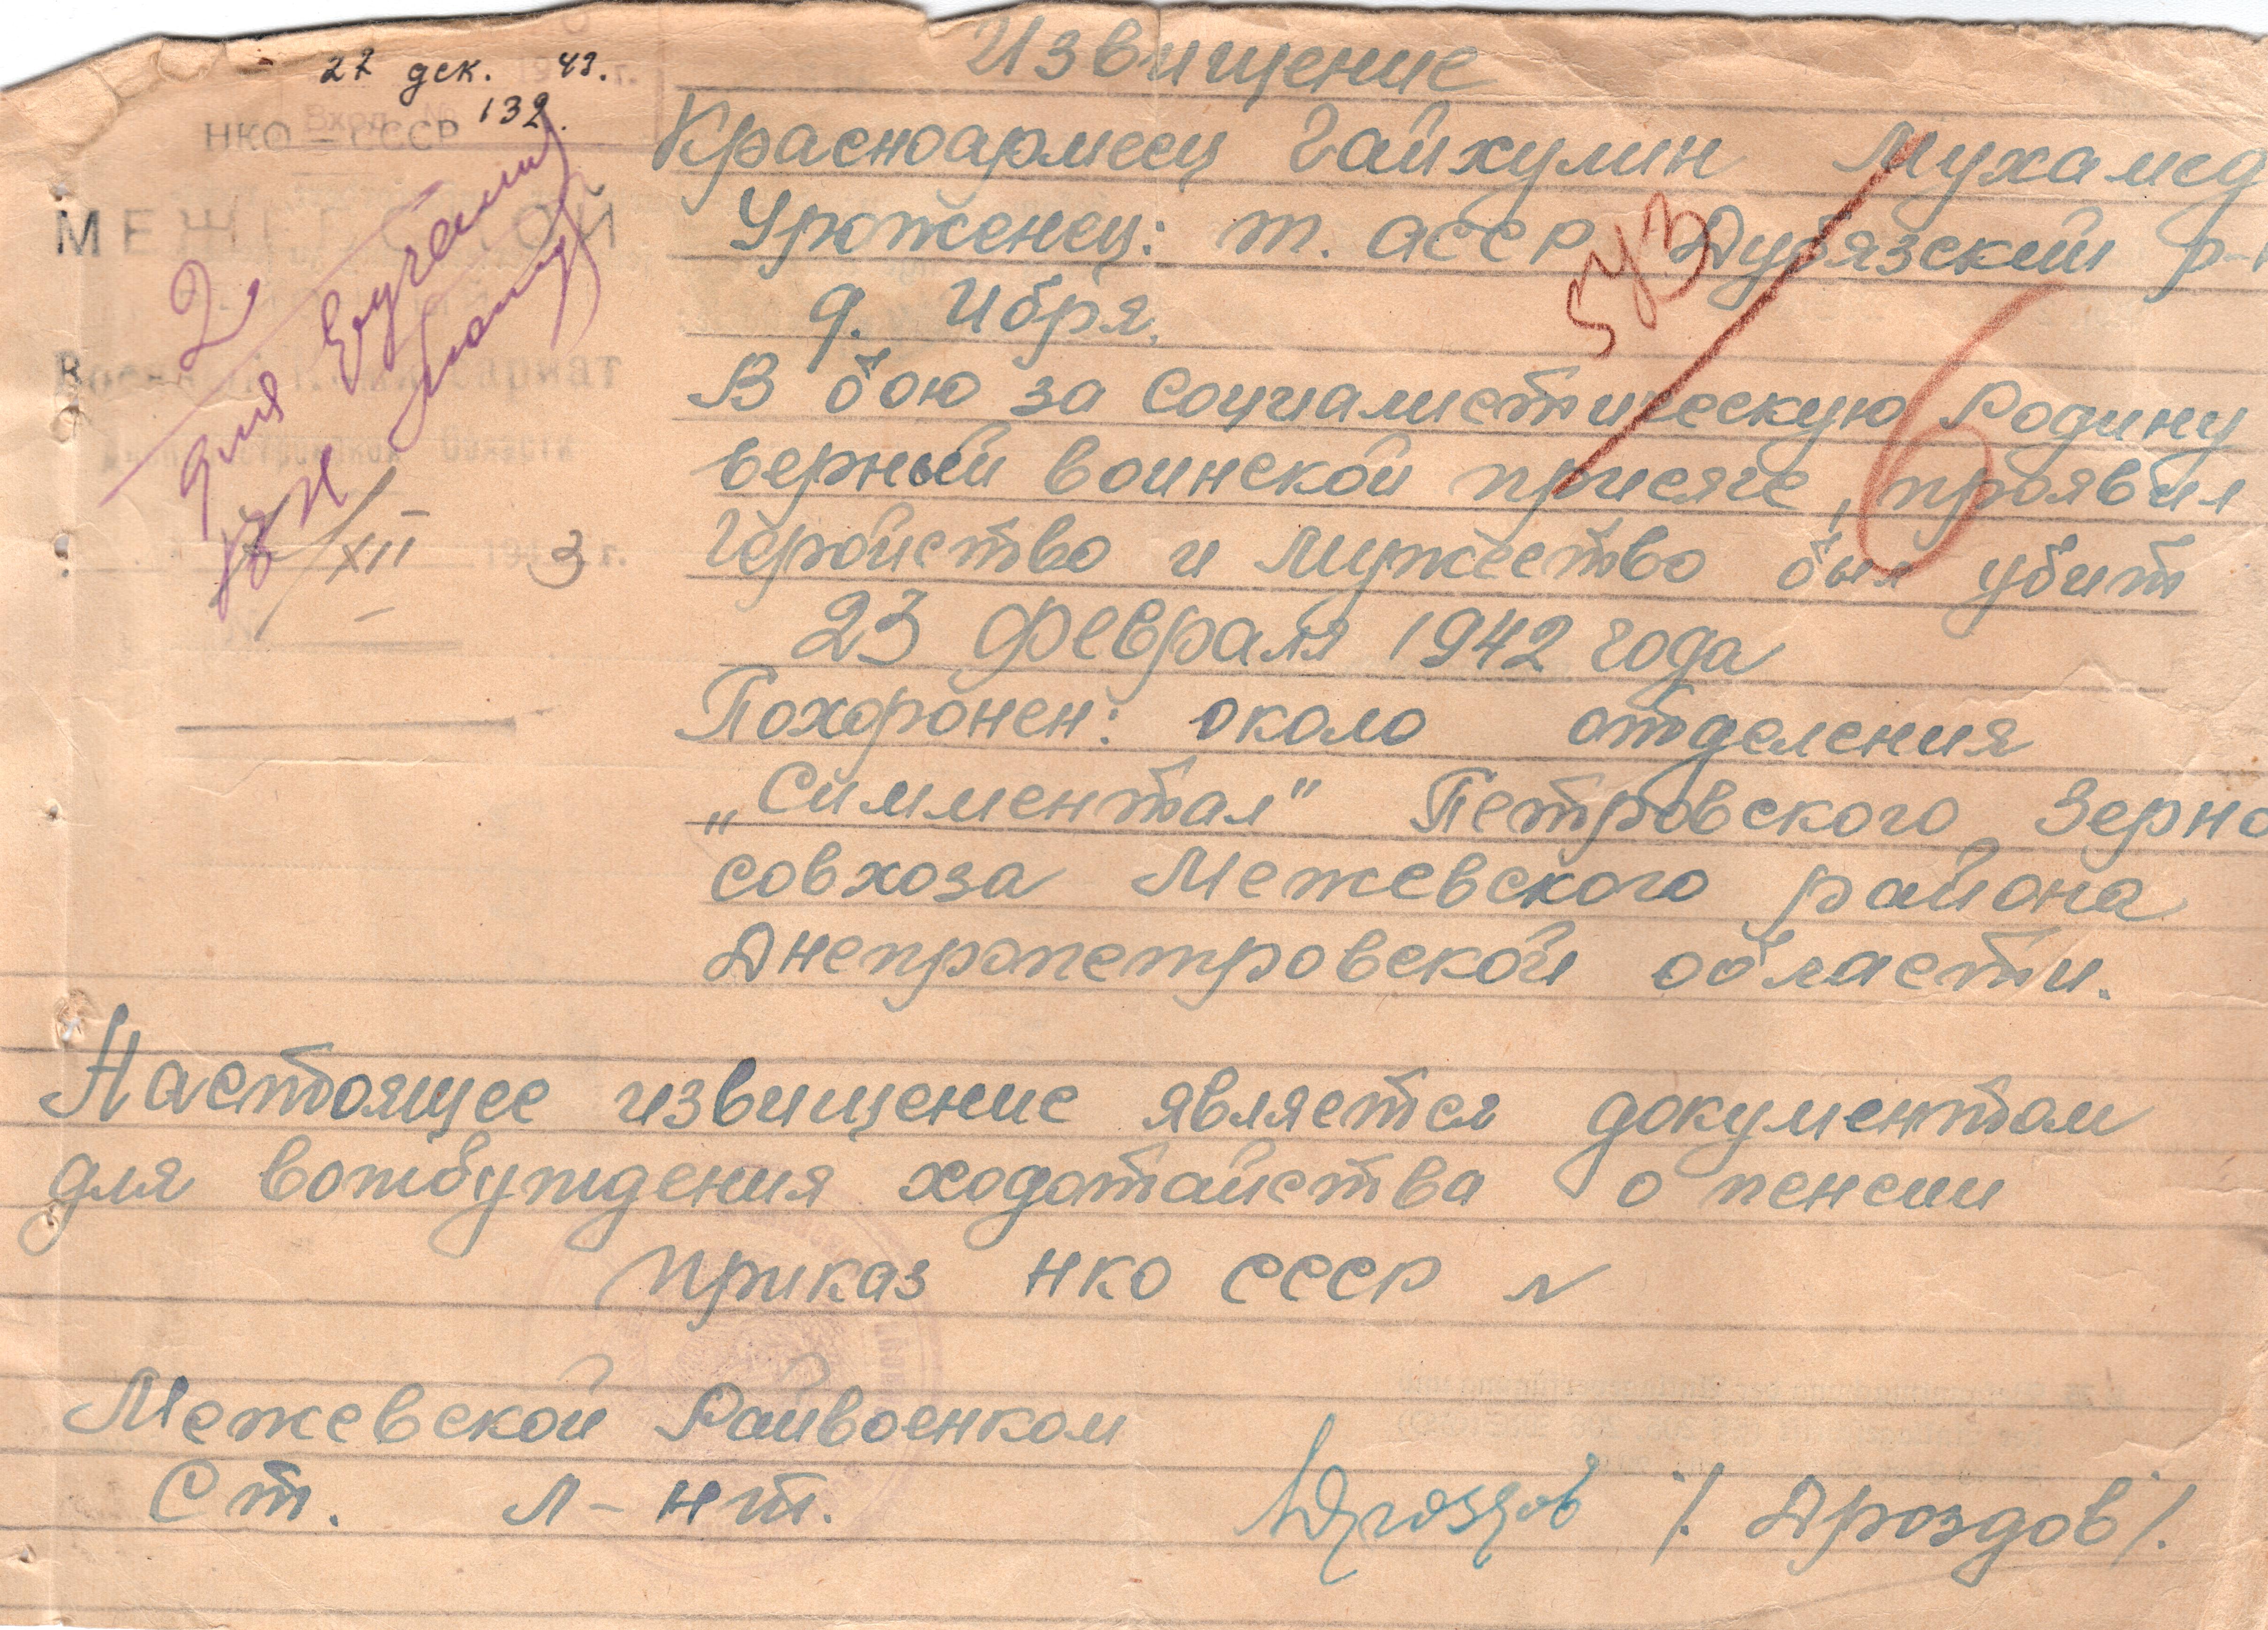 Извищение
27 дек. 43.
Вход. № 132.
НКО – СССР
МЕЖЕВСКОЙ
Военный Комиссариат
Области
/XII 1943 г.
2
для
Красноармеец Гайхулин Мухамед
Уроженец: т. АССР Дубязский р-н
д. Ибря.
543
6
В бою за социалистическую Родину
верный воинской присяге, проявил
Геройство и мужество был убит
23 февраля 1942 года
Похоронен: около отделения
„Симментал" Петровского Зерно
совхоза Межевского района
Днепропетровской области.
Настоящее извищение является документом
для вотбуждения ходотайства о пенсии
приказ НКО СССР №
Межевской Райвоенком
Ст. л-нт. Дроздов /. Дроздов /.